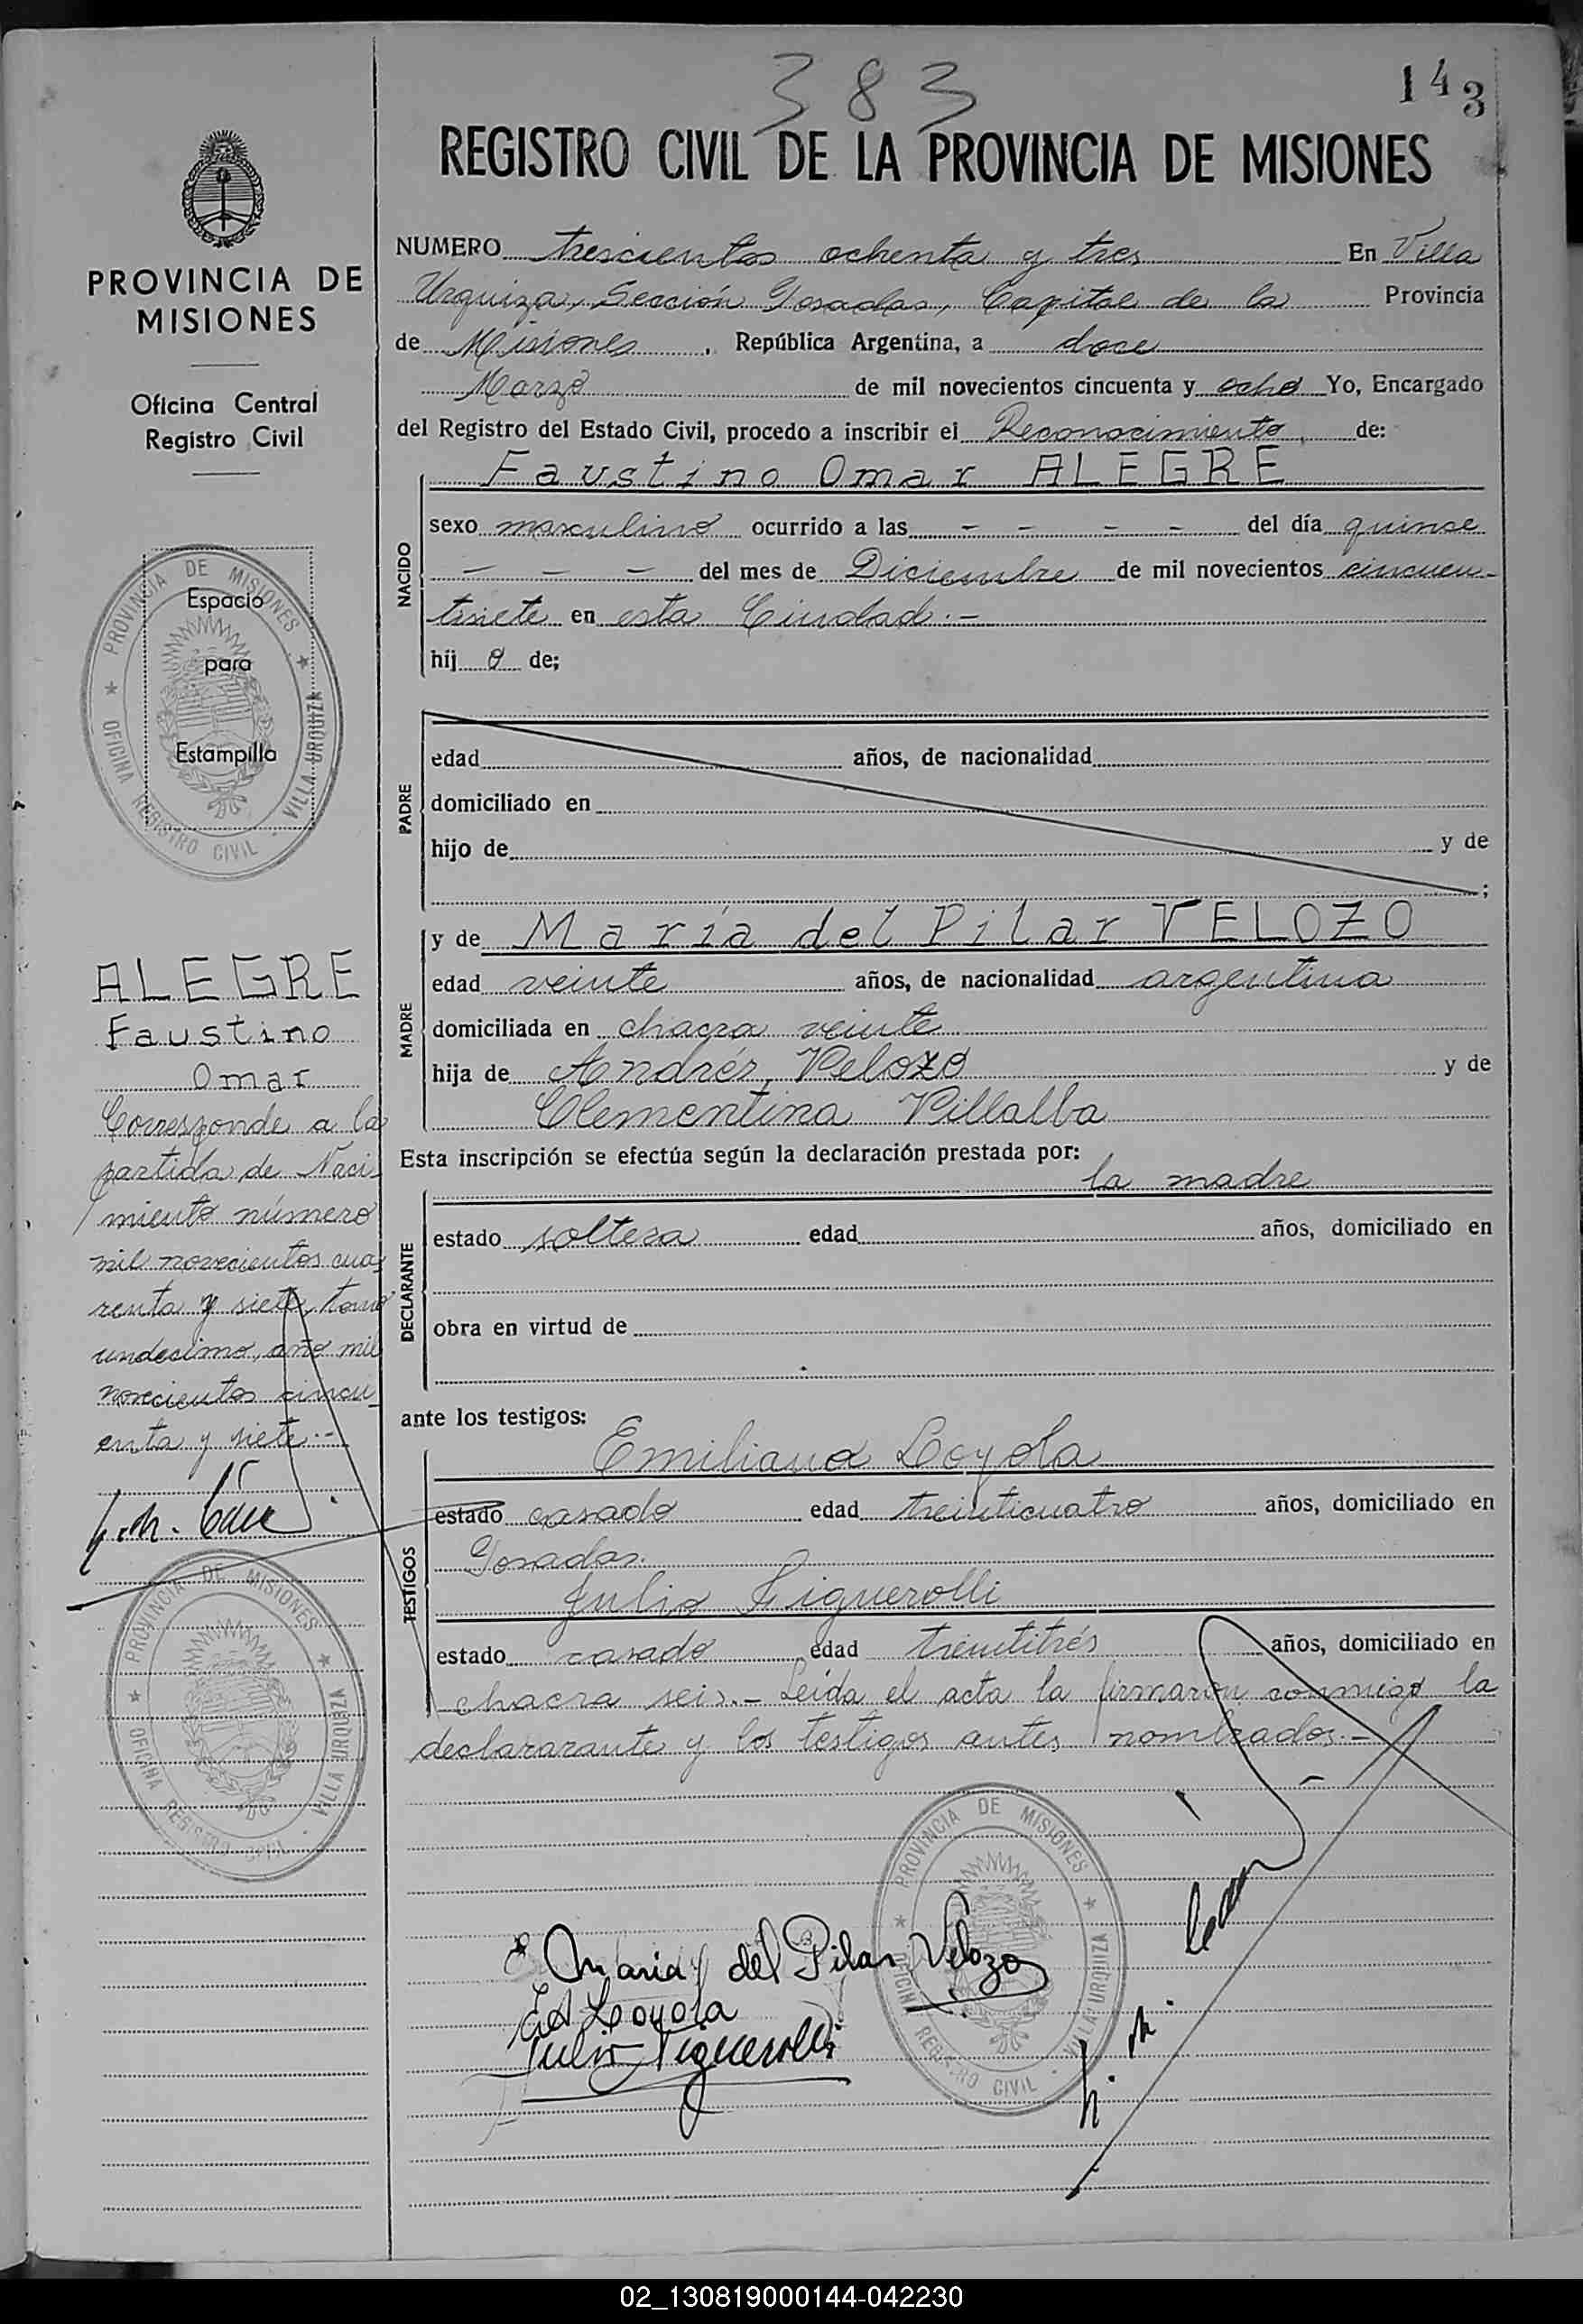 383
143
REGISTRO CIVIL DE LA PROVINCIA DE MISIONES
PROVINCIA DE
MISIONES
Oficina Central
Registro Civil
NUMERO trescientos ochenta y tres En Villa
Urquiza, Sección Posadas, Capital de la Provincia
de Misiones, República Argentina, a doce
Marzo de mil novecientos cincuenta y ocho Yo, Encargado
del Registro del Estado Civil, procedo a inscribir el Reconocimiento, de:
Faustino Omar ALEGRE
NACIDO
sexo masculino ocurrido a las - - - - del día quince
- - - del mes de Diciembre de mil novecientos cincuen-
tisiete en esta Ciudad.-
hij o de;
PROVINCIA DE MISIONES
OFICINA REGISTRO CIVIL - VILLA URQUIZA
Espacio
para
Estampilla
PADRE
edad años, de nacionalidad
domiciliado en
hijo de y de
;
MADRE
y de María del Pilar VELOZO
edad veinte años, de nacionalidad argentina
domiciliada en chacra veinte
hija de Andrés Velozo y de
Clementina Villalba
ALEGRE
Faustino
Omar
Corresponde a la
partida de Naci-
miento número
mil novecientos cua-
renta y siete, tomo
undecimo, año mil
novecientos cincu-
enta y siete.-
Esta inscripción se efectúa según la declaración prestada por:
la madre
DECLARANTE
estado soltera edad años, domiciliado en
obra en virtud de
ante los testigos:
TESTIGOS
Emiliano Loyola
estado casado edad treinticuatro años, domiciliado en
Posadas.
Julio Figuerolli
estado casado edad treintitrés años, domiciliado en
chacra seis.- Leída el acta la firmaron conmigo la
declararante y los testigos antes nombrados.-
PROVINCIA DE MISIONES
OFICINA REGISTRO CIVIL - VILLA URQUIZA
PROVINCIA DE MISIONES
OFICINA REGISTRO CIVIL - VILLA URQUIZA
María del Pilar Velozo
Ed Loyola
Julio Figuerolli
02_130819000144-042230